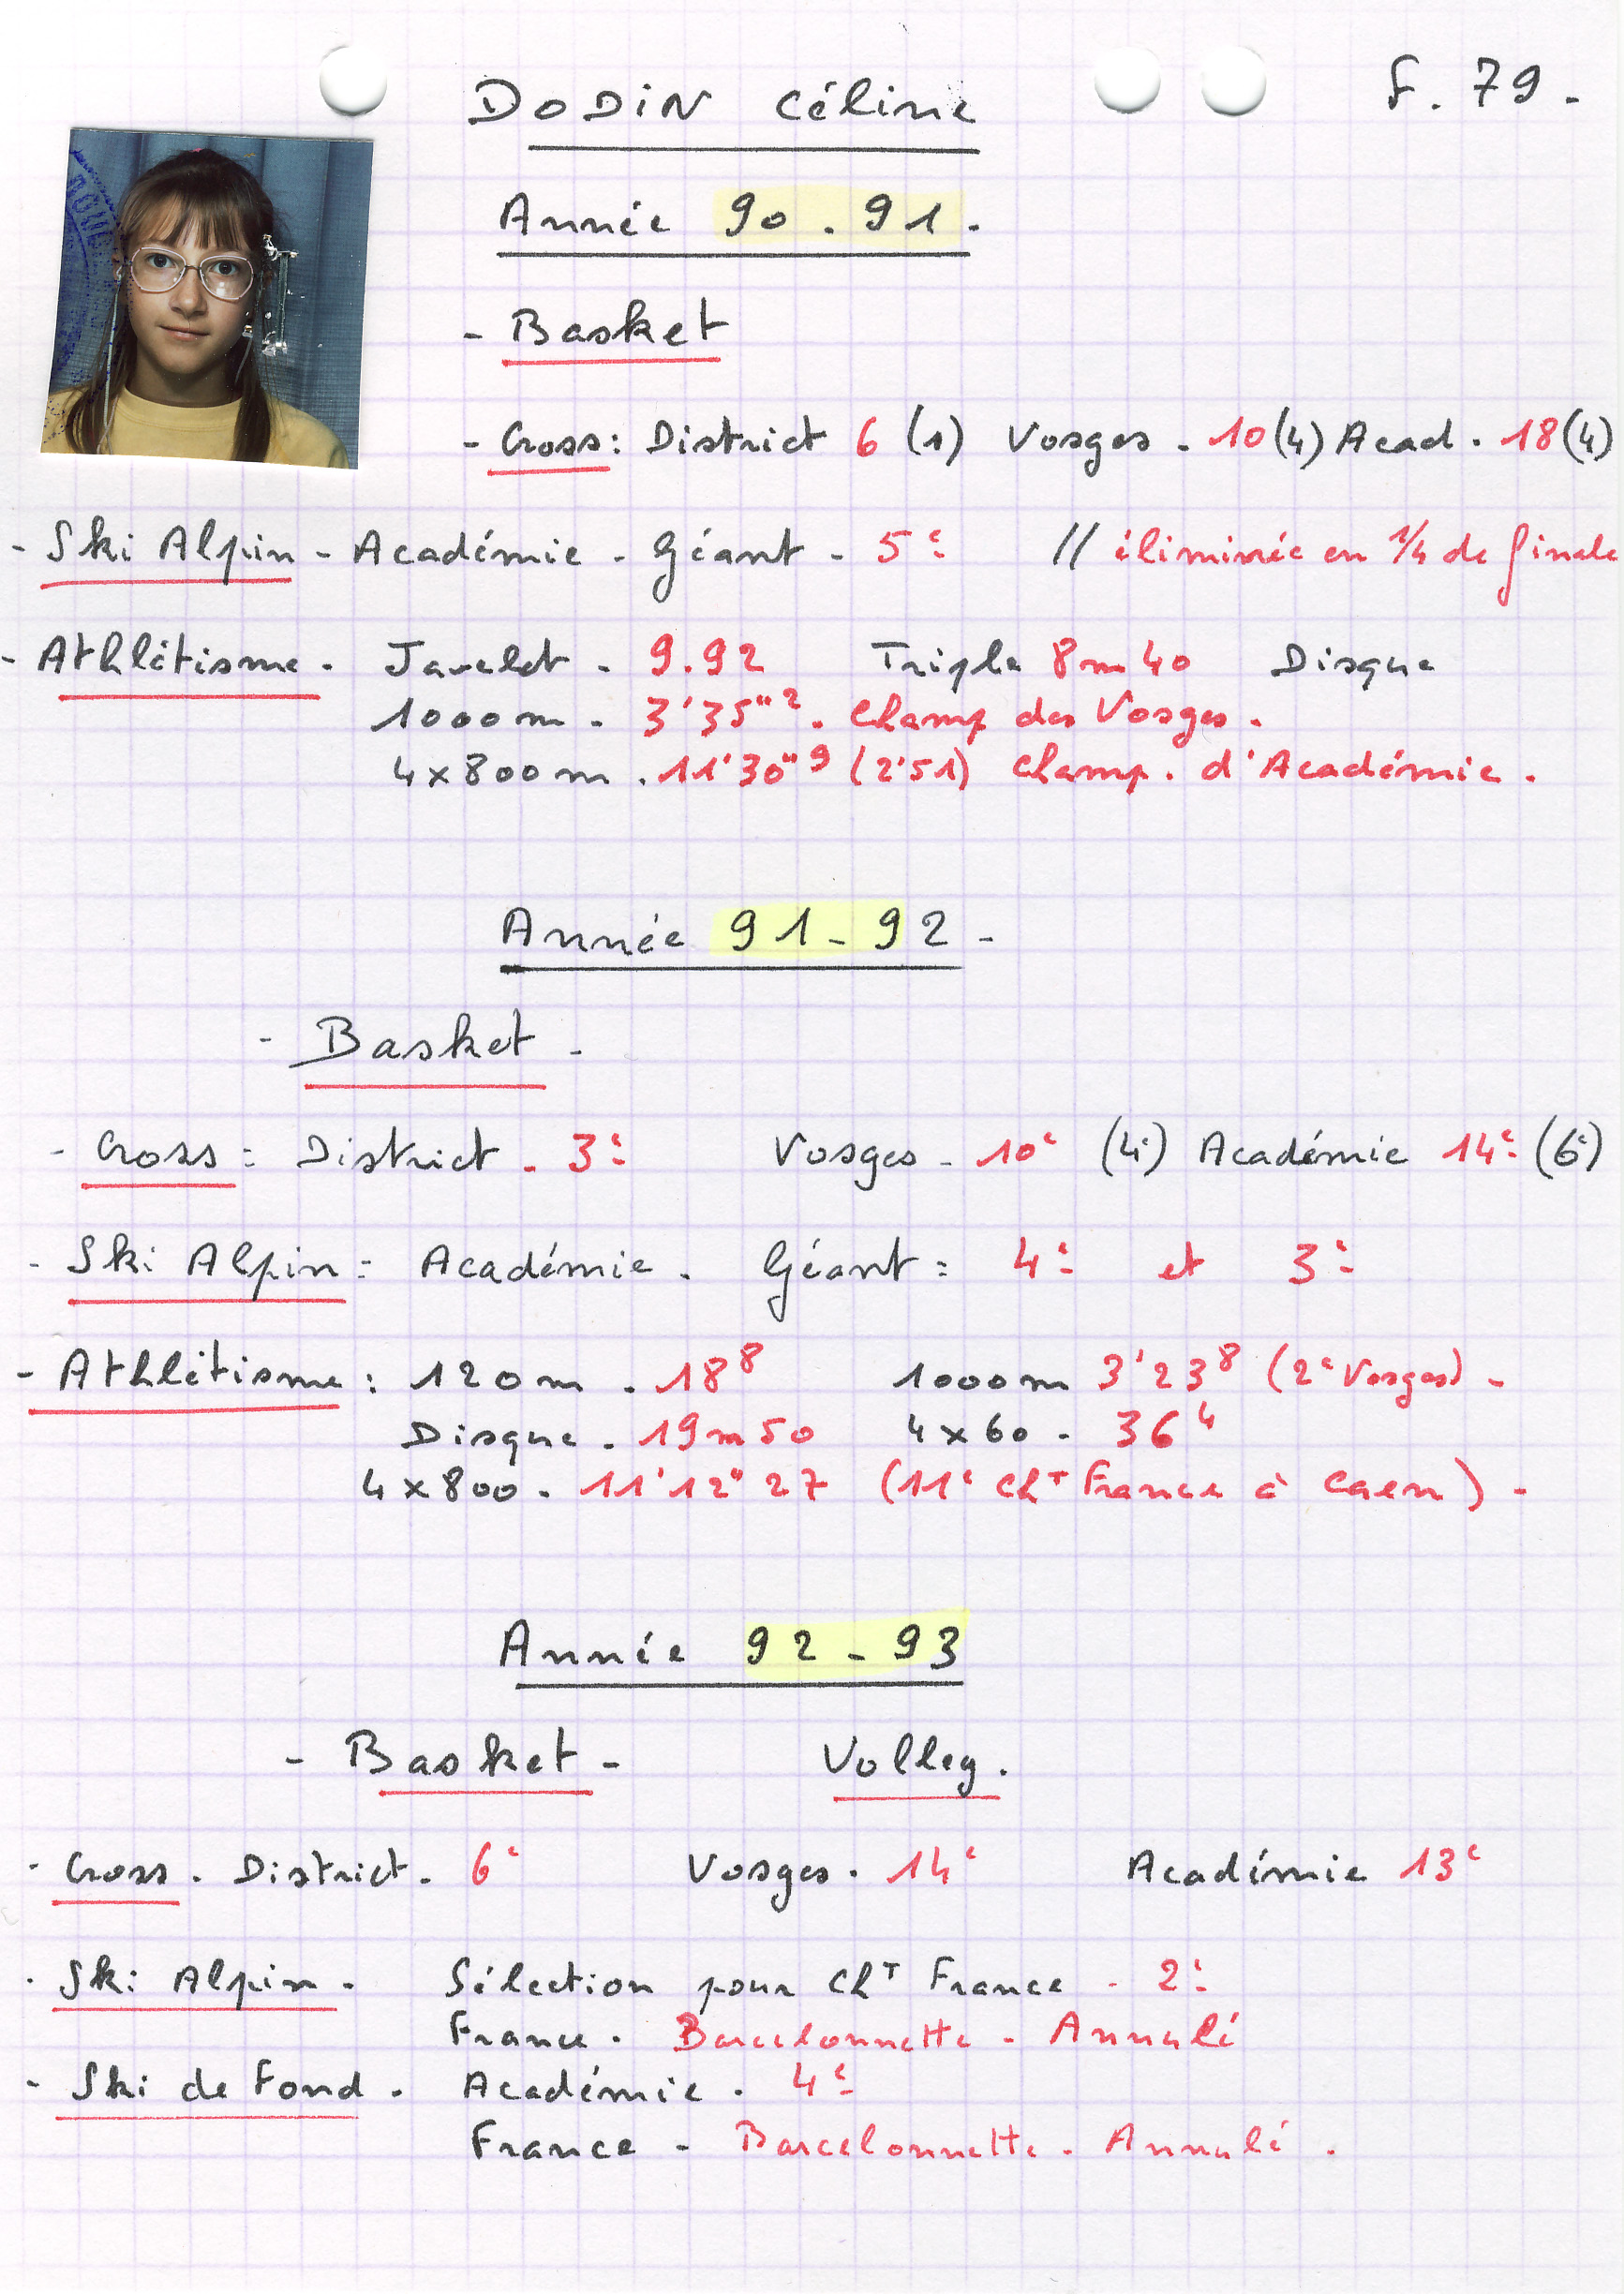 DODIN Céline
F. 79.
Année 90.91.
- Basket
- Cross: District 6 (1) Vosges. 10(4) Acad. 18(4)
- Ski Alpin - Académie - Géant - 5e // éliminée en 1/4 de finale
- Athlétisme. Javelot - 9.92 Triple 8m40 Disque
1000m. 3'35"2. Champ des Vosges.
4x800m. 11'30"9 (2'51) Champ. d'Académie.
Année 91-92-
- Basket -
- Cross: District. 3e Vosges - 10e (4e) Académie 14e (6e)
- Ski Alpin: Académie. Géant: 4e et 3e
- Athlétisme: 120m. 18 8 1000m 3'23 8 (2e Vosges) -
Disque. 19m50 4x60 - 36 4
4x800. 11'12"27 (11e ChT France à Caen) -
Année 92-93
- Basket - Volley.
- Cross. District. 6e Vosges. 14e Académie 13e
- Ski Alpin - Sélection pour ChT France - 2e
France. Barcelonnette - Annulé
- Ski de Fond. Académie. 4e
France - Barcelonnette. Annulé.